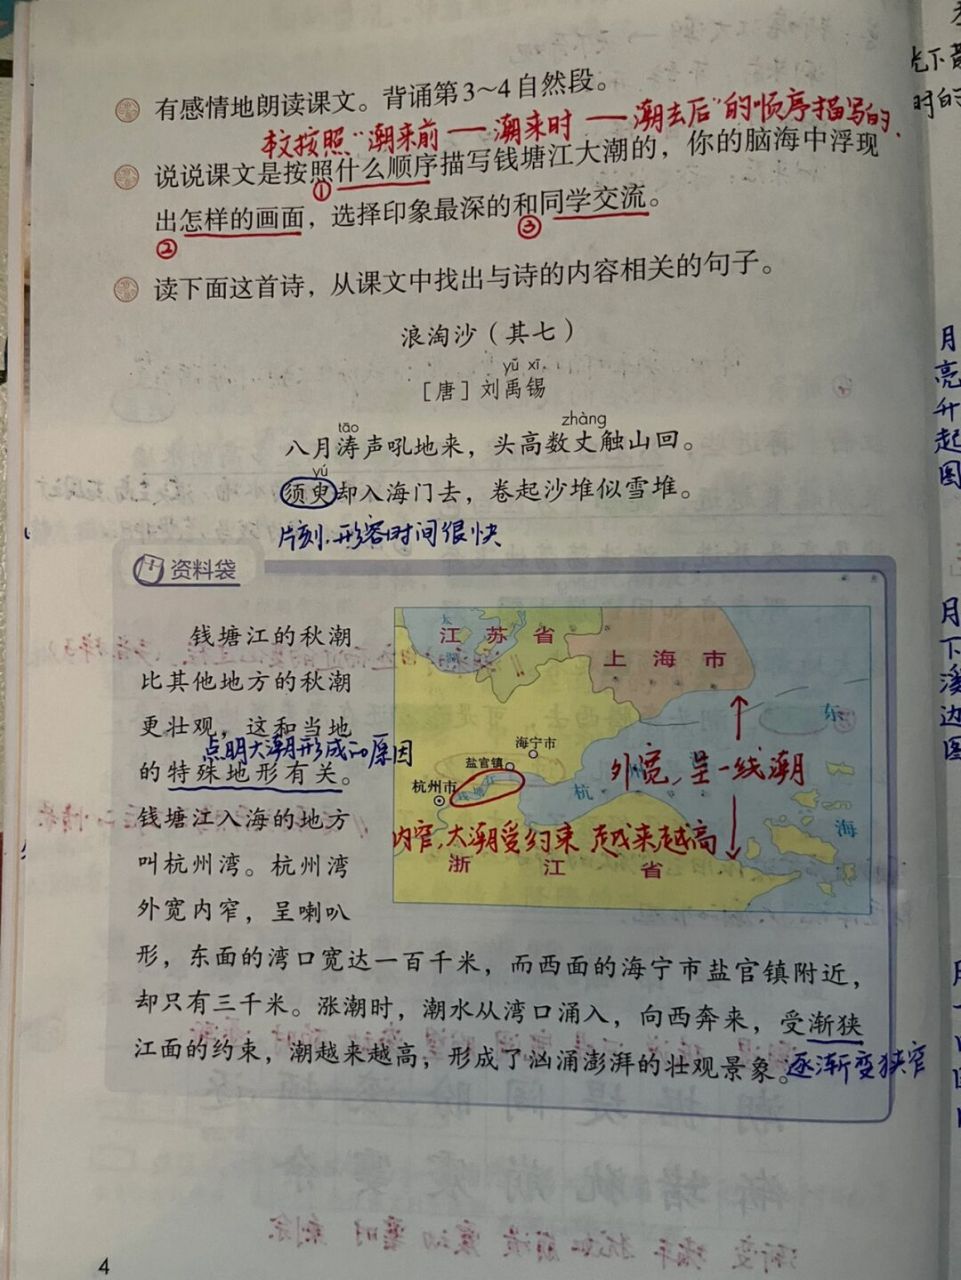 有感情地朗读课文。背诵第3～4自然段。
本文按照“潮来前——潮来时——潮去后”的顺序描写的.
说说课文是按照什么顺序描写钱塘江大潮的，你的脑海中浮现
①
出怎样的画面，选择印象最深的和同学交流。
② ③
读下面这首诗，从课文中找出与诗的内容相关的句子。
浪淘沙（其七）
yǔ xī
［唐］刘禹锡
tāo zhàng
八月涛声吼地来，头高数丈触山回。
yú
须臾却入海门去，卷起沙堆似雪堆。
片刻.形容时间很快
资料袋
钱塘江的秋潮
比其他地方的秋潮
更壮观，这和当地
点明大潮形成的原因
的特殊地形有关。
钱塘江入海的地方
叫杭州湾。杭州湾
外宽内窄，呈喇叭
形，东面的湾口宽达一百千米，而西面的海宁市盐官镇附近，
却只有三千米。涨潮时，潮水从湾口涌入，向西奔来，受渐狭
江面的约束，潮越来越高，形成了汹涌澎湃的壮观景象。
逐渐变狭窄
江苏省
上海市
东
海宁市
盐官镇
杭州市
钱塘江
杭
外宽，呈一线潮
内窄，大潮受约束 越来越高
海
浙江省
4
月
亮
升
起
图
月
下
溪
边
图